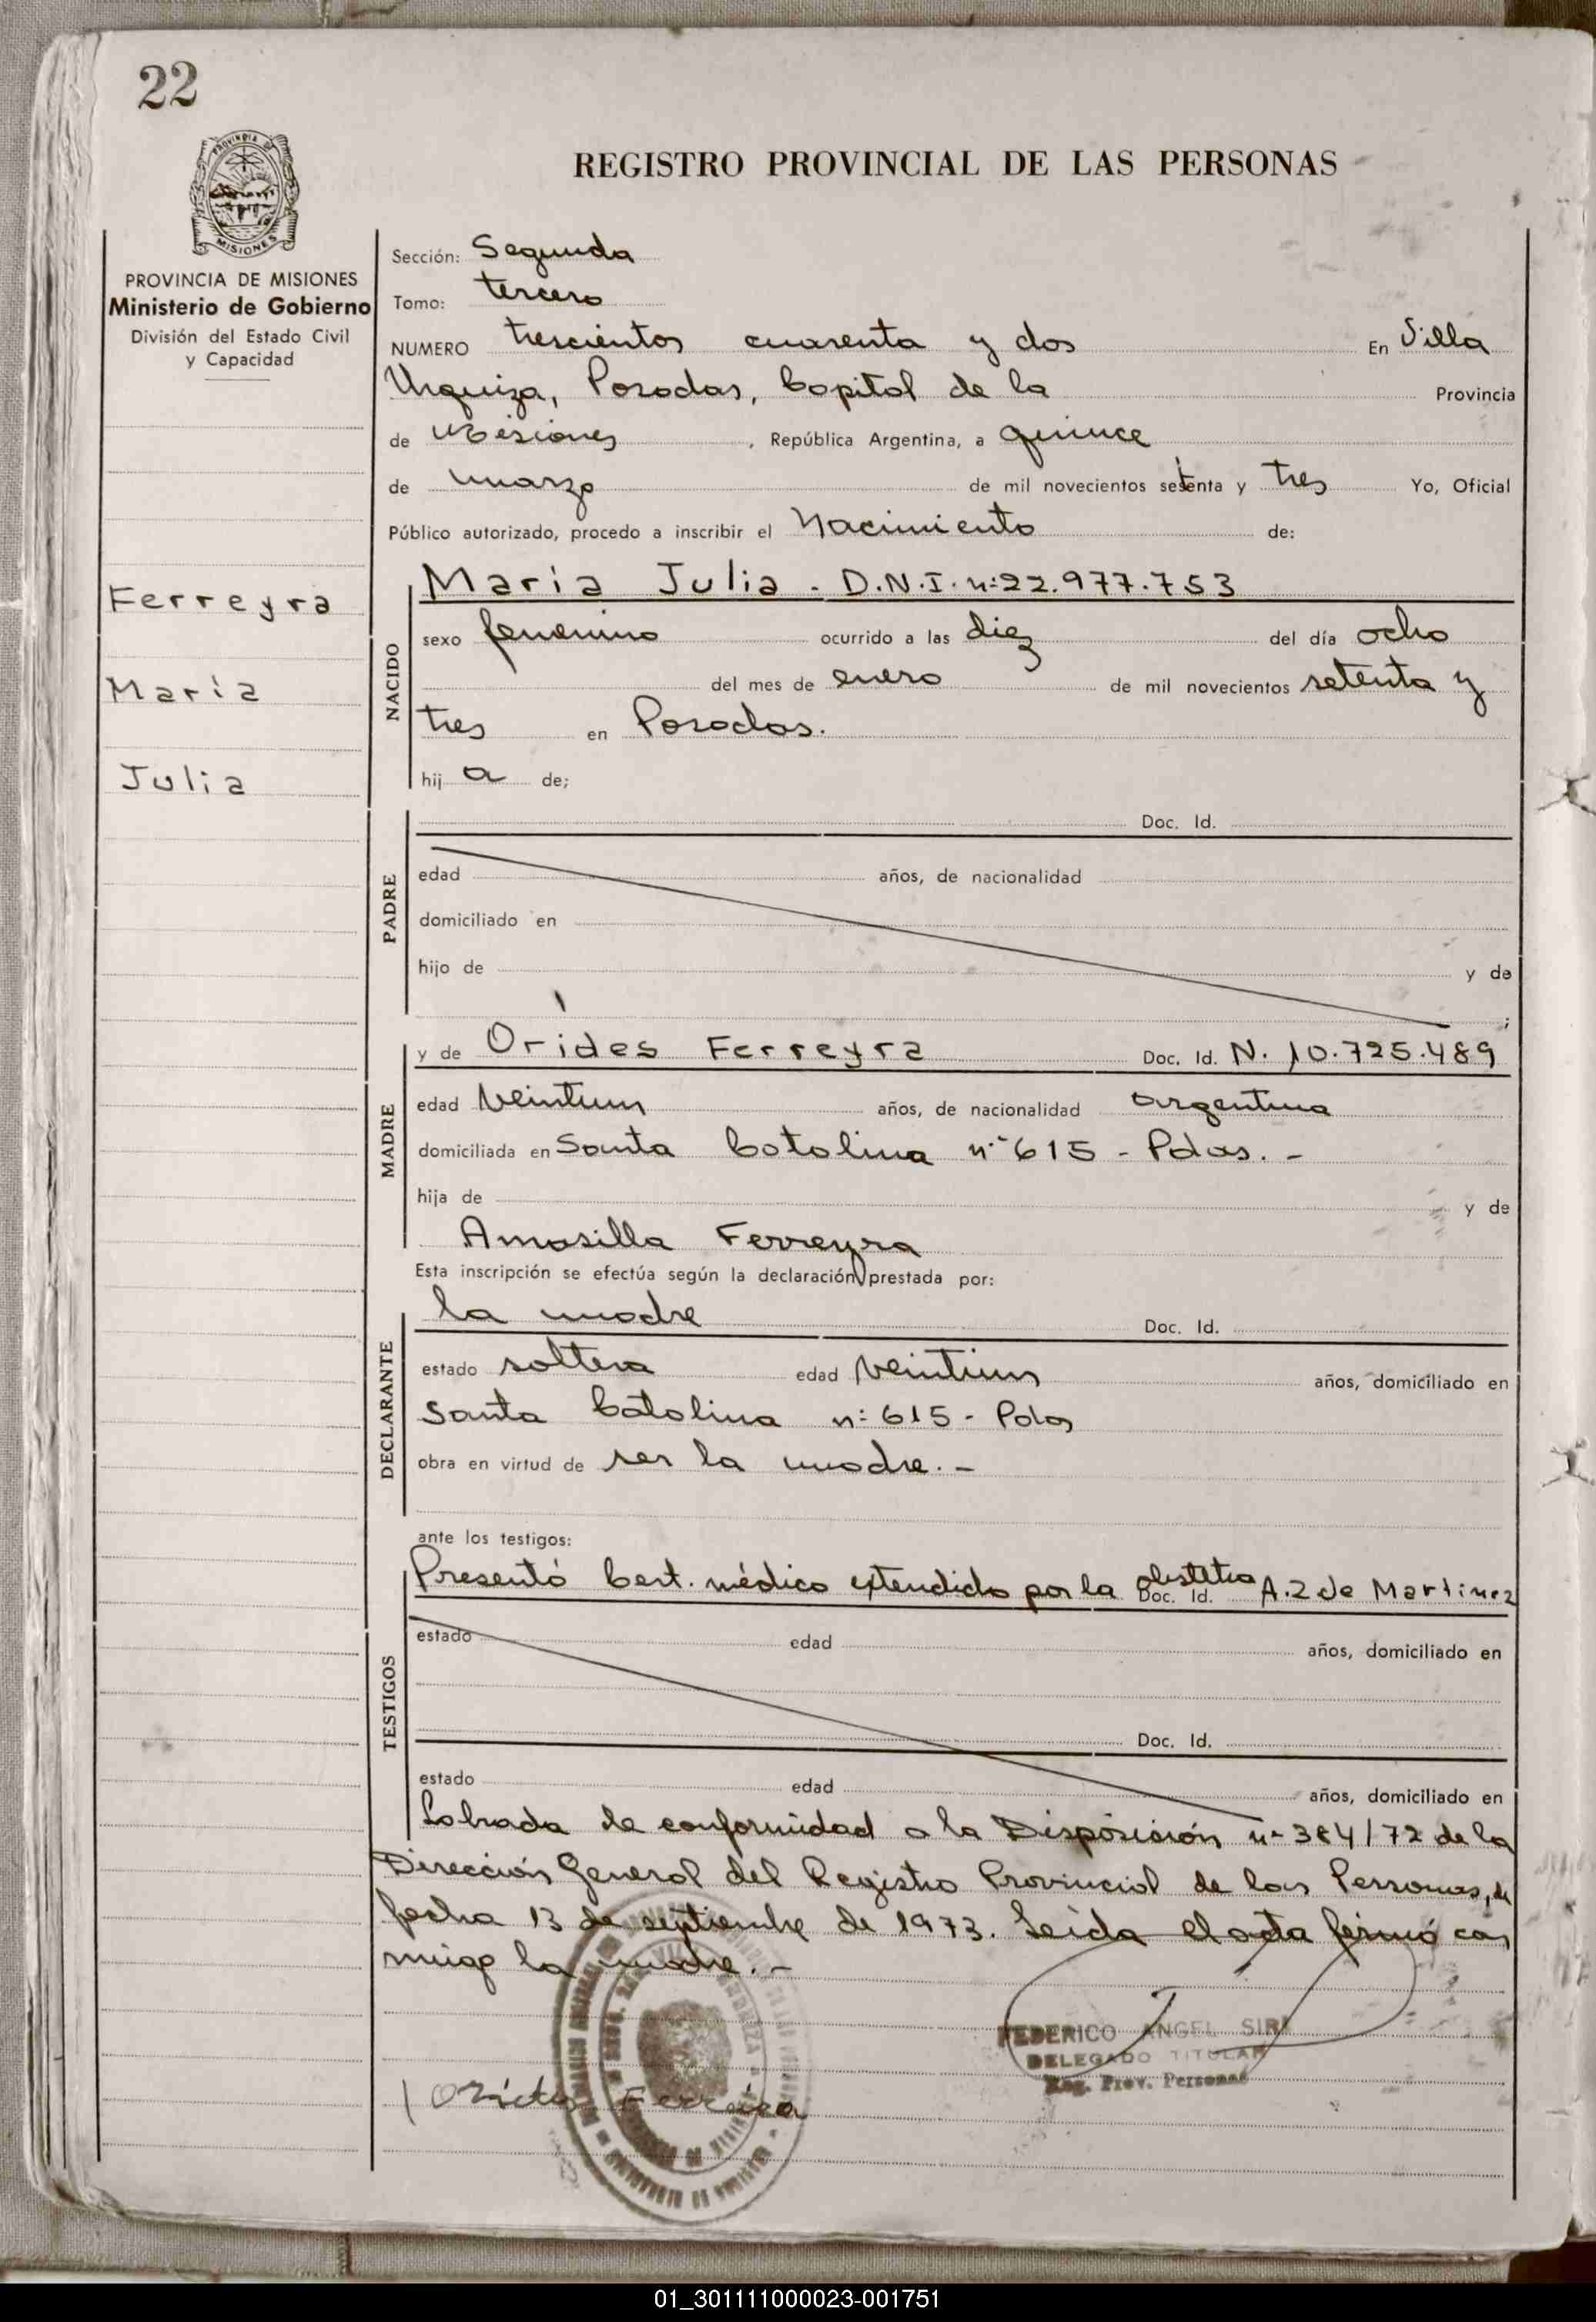 22
PROVINCIA DE
MISIONES
REGISTRO PROVINCIAL DE LAS PERSONAS
PROVINCIA DE MISIONES
Ministerio de Gobierno
División del Estado Civil
y Capacidad
Ferreyra
María
Julia
Sección: Segunda
Tomo: tercero
NUMERO trescientos cuarenta y dos En Villa
Urquiza, Posadas, Capital de la Provincia
de Misiones, República Argentina, a quince
de marzo de mil novecientos setenta y tres Yo, Oficial
Público autorizado, procedo a inscribir el Nacimiento de:
NACIDO
María Julia - D.N.I. n:22.977.753
sexo femenino ocurrido a las diez del día ocho
del mes de enero de mil novecientos setenta y
tres en Posadas.
hij a de;
PADRE
Doc. Id.
edad años, de nacionalidad
domiciliado en
hijo de y de
;
MADRE
y de Orides Ferreyra Doc. Id. N. 10.725.489
edad veintiun años, de nacionalidad argentina
domiciliada en Santa Catalina n° 615 - Pdas. -
hija de y de
Amasilla Ferreyra
Esta inscripción se efectúa según la declaración prestada por:
DECLARANTE
la madre Doc. Id.
estado soltera edad veintiun años, domiciliado en
Santa Catalina n: 615 - Pdas
obra en virtud de ser la madre. -
ante los testigos:
TESTIGOS
Presentó Cert. médico extendido por la obstetra Doc. Id. A. Z de Martinez
estado edad años, domiciliado en
Doc. Id.
estado edad años, domiciliado en
Labrada de conformidad a la Disposición n- 384/72 de la
Dirección General del Registro Provincial de las Personas, de
fecha 13 de septiembre de 1973. Leída el acta firmó con
migo la madre. -
FEDERICO ANGEL SIRI
DELEGADO TITULAR
Reg. Prov. Personas
Orides Ferreira
01_301111000023-001751